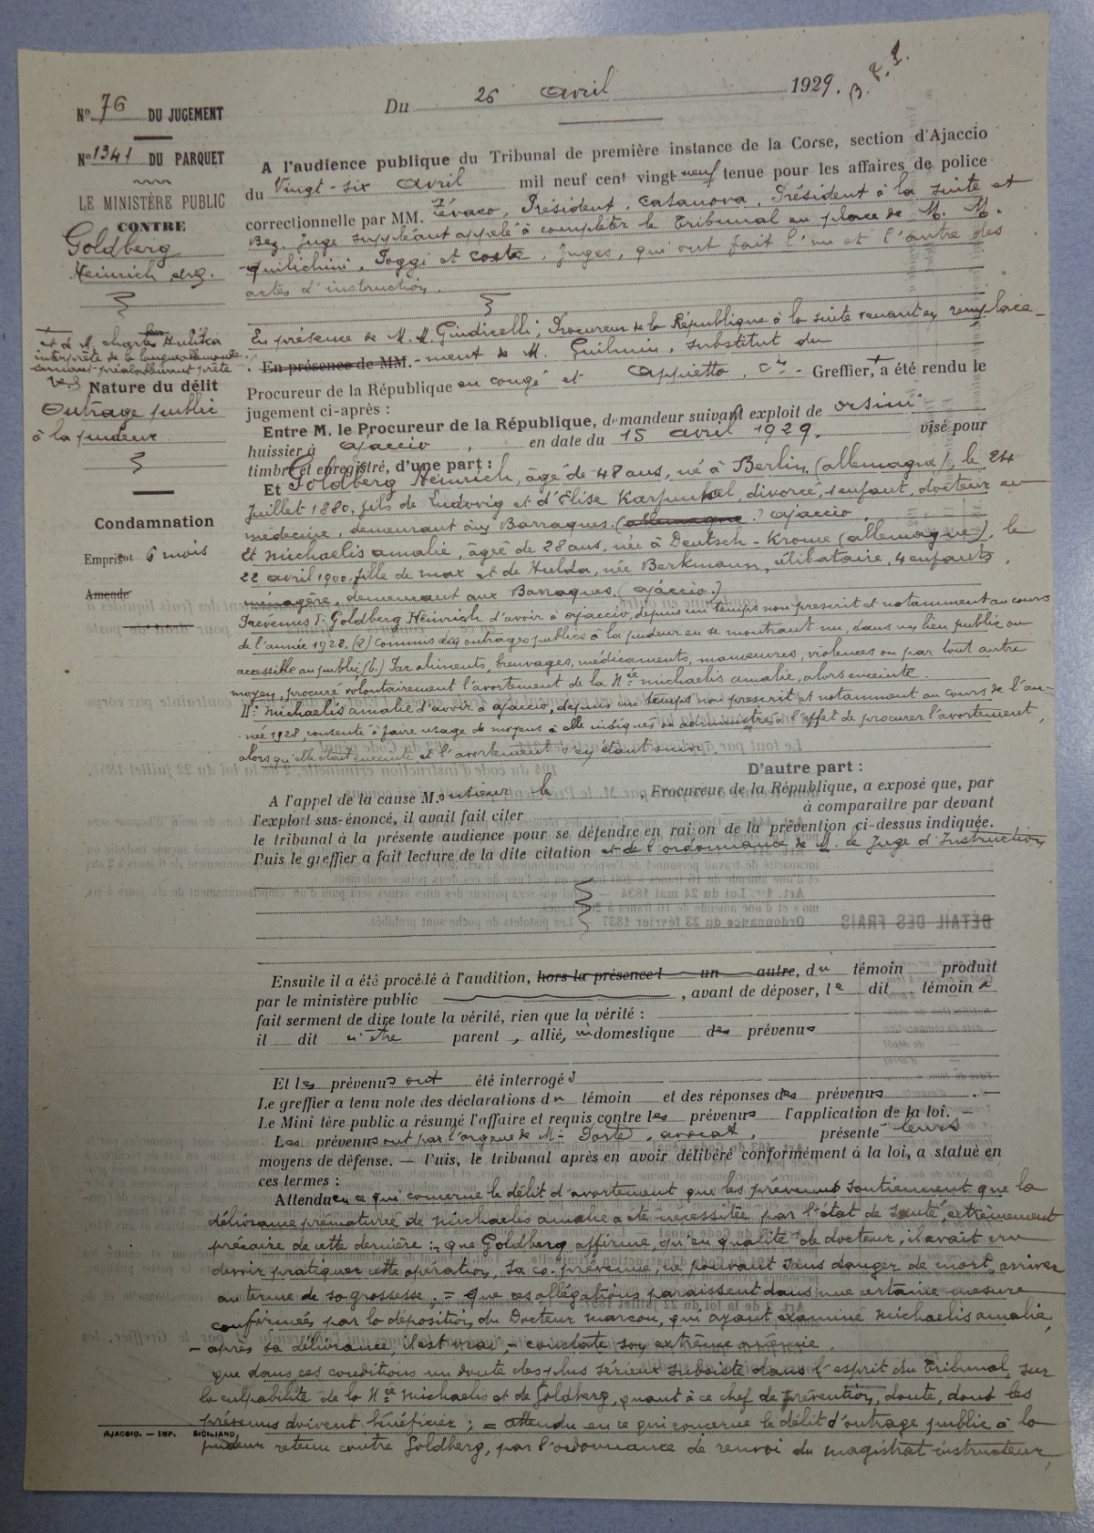 Du 26 avril 1929. B. F. 1.
N° 76 DU JUGEMENT
N° 1341 DU PARQUET
LE MINISTÈRE PUBLIC
CONTRE
Goldberg
Heinrich
et à M. Charles
interprète de la langue allemande
ayant préalablement prêté
Nature du délit
Outrage public
à la pudeur
Condamnation
Emprist 6 mois
Amende
A l'audience publique du Tribunal de première instance de la Corse, section d'Ajaccio
du Vingt-six avril mil neuf cent vingt neuf tenue pour les affaires de police
correctionnelle par MM. Zévaco, Président, Casanova, Président à la suite et
Bez, Juge suppléant appelé à compléter le Tribunal en place de M. M.
Quilichini, Poggi et Coste, Juges, qui ont fait l'un et l'autre des
actes d'instruction.
En présence de M. M. Giudicelli, Procureur de la République à la suite venant en remplace-
En présence de MM. -ment de M. Guilmin, substitut du
Procureur de la République en congé et Appietto, Cis - Greffier, + a été rendu le
jugement ci-après :
Entre M. le Procureur de la République, demandeur suivant exploit de Orsini
huissier à Ajaccio, en date du 15 avril 1929, visé pour
timbre et enregistré, d'une part :
Et Goldberg Heinrich, âgé de 48 ans, né à Berlin, (allemagne), le 24
Juillet 1880, fils de Ludovig et d'Elise Karfunkel, divorcé, 1 enfant, docteur en
médecine, demeurant aux Barraques (allemagne) Ajaccio,
Et Michaelis Amalie, âgée de 28 ans, née à Deutsch-Krone (allemagne), le
22 avril 1900, fille de Max et de Hulda, née Berkmann, célibataire, 4 enfants,
ménagère, demeurant aux Barraques, (Ajaccio.)
Prévenus I: Goldberg Heinrich d'avoir à Ajaccio, depuis un temps non prescrit et notamment au cours
de l'année 1928, (a) commis des outrages publics à la pudeur en se montrant nu, dans un lieu public ou
accessible au public (b.) Par aliments, breuvages, médicaments, manœuvres, violences ou par tout autre
moyen, procuré volontairement l'avortement de la Nee Michaelis Amalie, alors enceinte.
II: Michaelis Amalie d'avoir à Ajaccio, depuis un temps non prescrit et notamment au cours de l'an-
née 1928, consenti à faire usage de moyens à elle indiqués ou administrés à l'effet de procurer l'avortement,
alors qu'elle était enceinte et l'avortement s'en étant suivi.
D'autre part :
A l'appel de la cause Monsieur le Procureur de la République, a exposé que, par
l'exploit sus-énoncé, il avait fait citer à comparaître par devant
le tribunal à la présente audience pour se défendre en raison de la prévention ci-dessus indiquée.
Puis le greffier a fait lecture de la dite citation et de l'ordonnance de M. le Juge d'Instruction
Ensuite il a été procédé à l'audition, hors la présence l un autre, du témoin produit
par le ministère public , avant de déposer, le dit témoin a
fait serment de dire toute la vérité, rien que la vérité :
il dit n'être parent, allié, ni domestique des prévenus
Et les prévenus ont été interrogés
Le greffier a tenu note des déclarations du témoin et des réponses des prévenus .—
Le Ministère public a résumé l'affaire et requis contre les prévenus l'application de la loi. —
Les prévenus ont par l'organe de Me , avocat, présenté leurs
moyens de défense. — Puis, le tribunal après en avoir délibéré conformément à la loi, a statué en
ces termes :
Attendu en ce qui concerne le délit d'avortement que les prévenus soutiennent que la
délivrance prématurée de Michaelis Amalie a été nécessitée par l'état de santé, extrêmement
précaire de cette dernière ; que Goldberg affirme, qu'en qualité de docteur, il avait cru
devoir pratiquer cette opération, sa co-prévenue, ne pouvant sans danger de mort, arriver
au terme de sa grossesse ; = que ces allégations paraissent dans une certaine mesure
confirmées par la déposition du Docteur Marcou, qui ayant examiné Michaelis Amalie,
- après sa délivrance, il est vrai - constate son extrême anémie.
que dans ces conditions un doute des plus sérieux subsiste dans l'esprit du Tribunal, sur
la culpabilité de la Nee Michaelis et de Goldberg, quant à ce chef de prévention, doute, dont les
prévenus doivent bénéficier ; = attendu en ce qui concerne le délit d'outrage public à la
pudeur retenu contre Goldberg, par l'ordonnance de renvoi du magistrat instructeur,
AJACCIO. — IMP. SICILIANO,